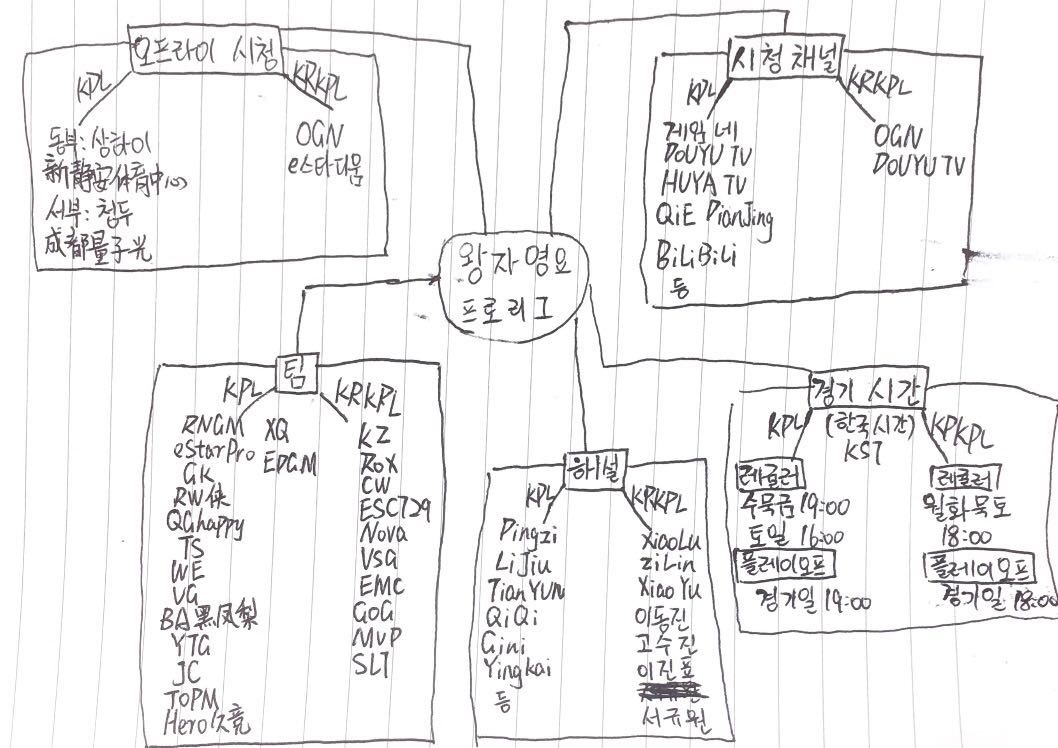 오프라이 시청
KPL
KRKPL
동부: 상하이
新静安体育中心
서부: 청두
成都量子光
OGN
e스타디움
시청 채널
KPL
KRKPL
게임 네
DOUYU TV
HUYA TV
QiE DianJing
BiLiBiLi
등
OGN
DOUYU TV
왕자영요
프로리그
팀
KPL
KRKPL
RNGM
eStarPro
GK
RW侠
QGhappy
TS
WE
VG
BA黑凤梨
YTG
JC
TOPM
Hero久竞
XQ
EDGM
KZ
ROX
CW
ESC729
Nova
VSG
EMC
GOG
MVP
SLT
해설
KPL
KRKPL
Pingzi
LiJiu
TianYUN
QiQi
Gini
Yingkai
등
XiaoLu
ZiLin
XiaoYu
이동진
고수진
이진표
서규원
경기 시간
(한국시간)
KST
KPL
KPKPL
레귤러
수목금 19:00
토일 16:00
플레이오프
경기일 19:00
레귤러
월화목토
18:00
플레이오프
경기일 18:00